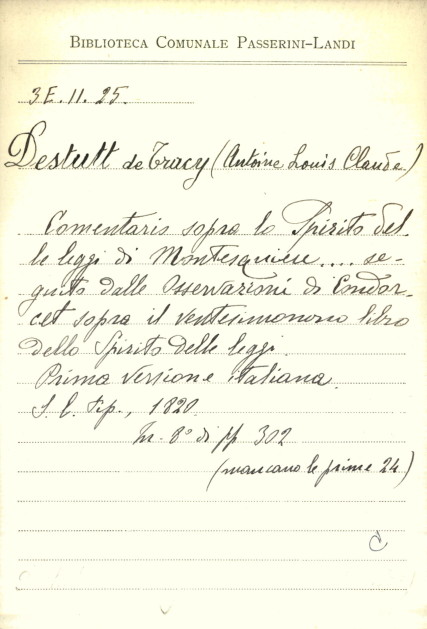 BIBLIOTECA COMUNALE PASSERINI-LANDI
3E.11.25.
Destutt de Tracy (Antoine Louis Claude)
Comentario sopra lo Spirito del-
le leggi di Montesquieu.... se-
guito dalle Osservazioni di Condor-
cet sopra il ventesimonono libro
dello Spirito delle leggi.
Prima versione italiana.
S. l. Tip., 1820.
In-8° di pp 302
(mancano le prime 24)
C